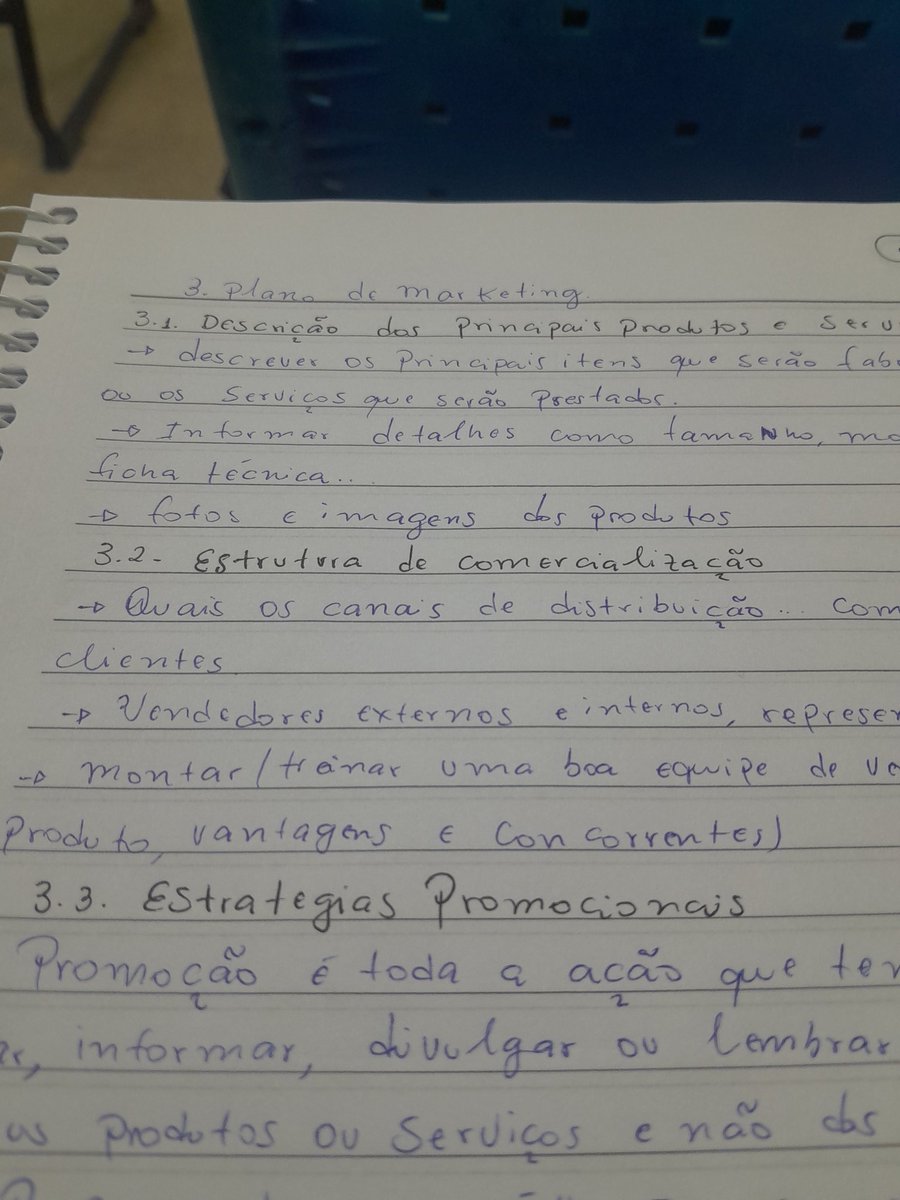 3. Plano de marketing.
3.1. Descrição dos Principais Produtos e Serv
→ descrever os Principais itens que serão fab
ou os Serviços que serão Prestados.
→ Informar detalhes como tamanho, mo
ficha técnica..
→ fotos e imagens dos produtos
3.2- Estrutura de comercialização
→ Quais os canais de distribuição... com
clientes
→ Vendedores externos e internos, represen
→ montar/treinar uma boa equipe de ve
Produto, vantagens e concorrentes)
3.3. Estrategias Promocionais
Promoção é toda a ação que tem
ar, informar, divulgar ou lembrar
os produtos ou Serviços e não dos